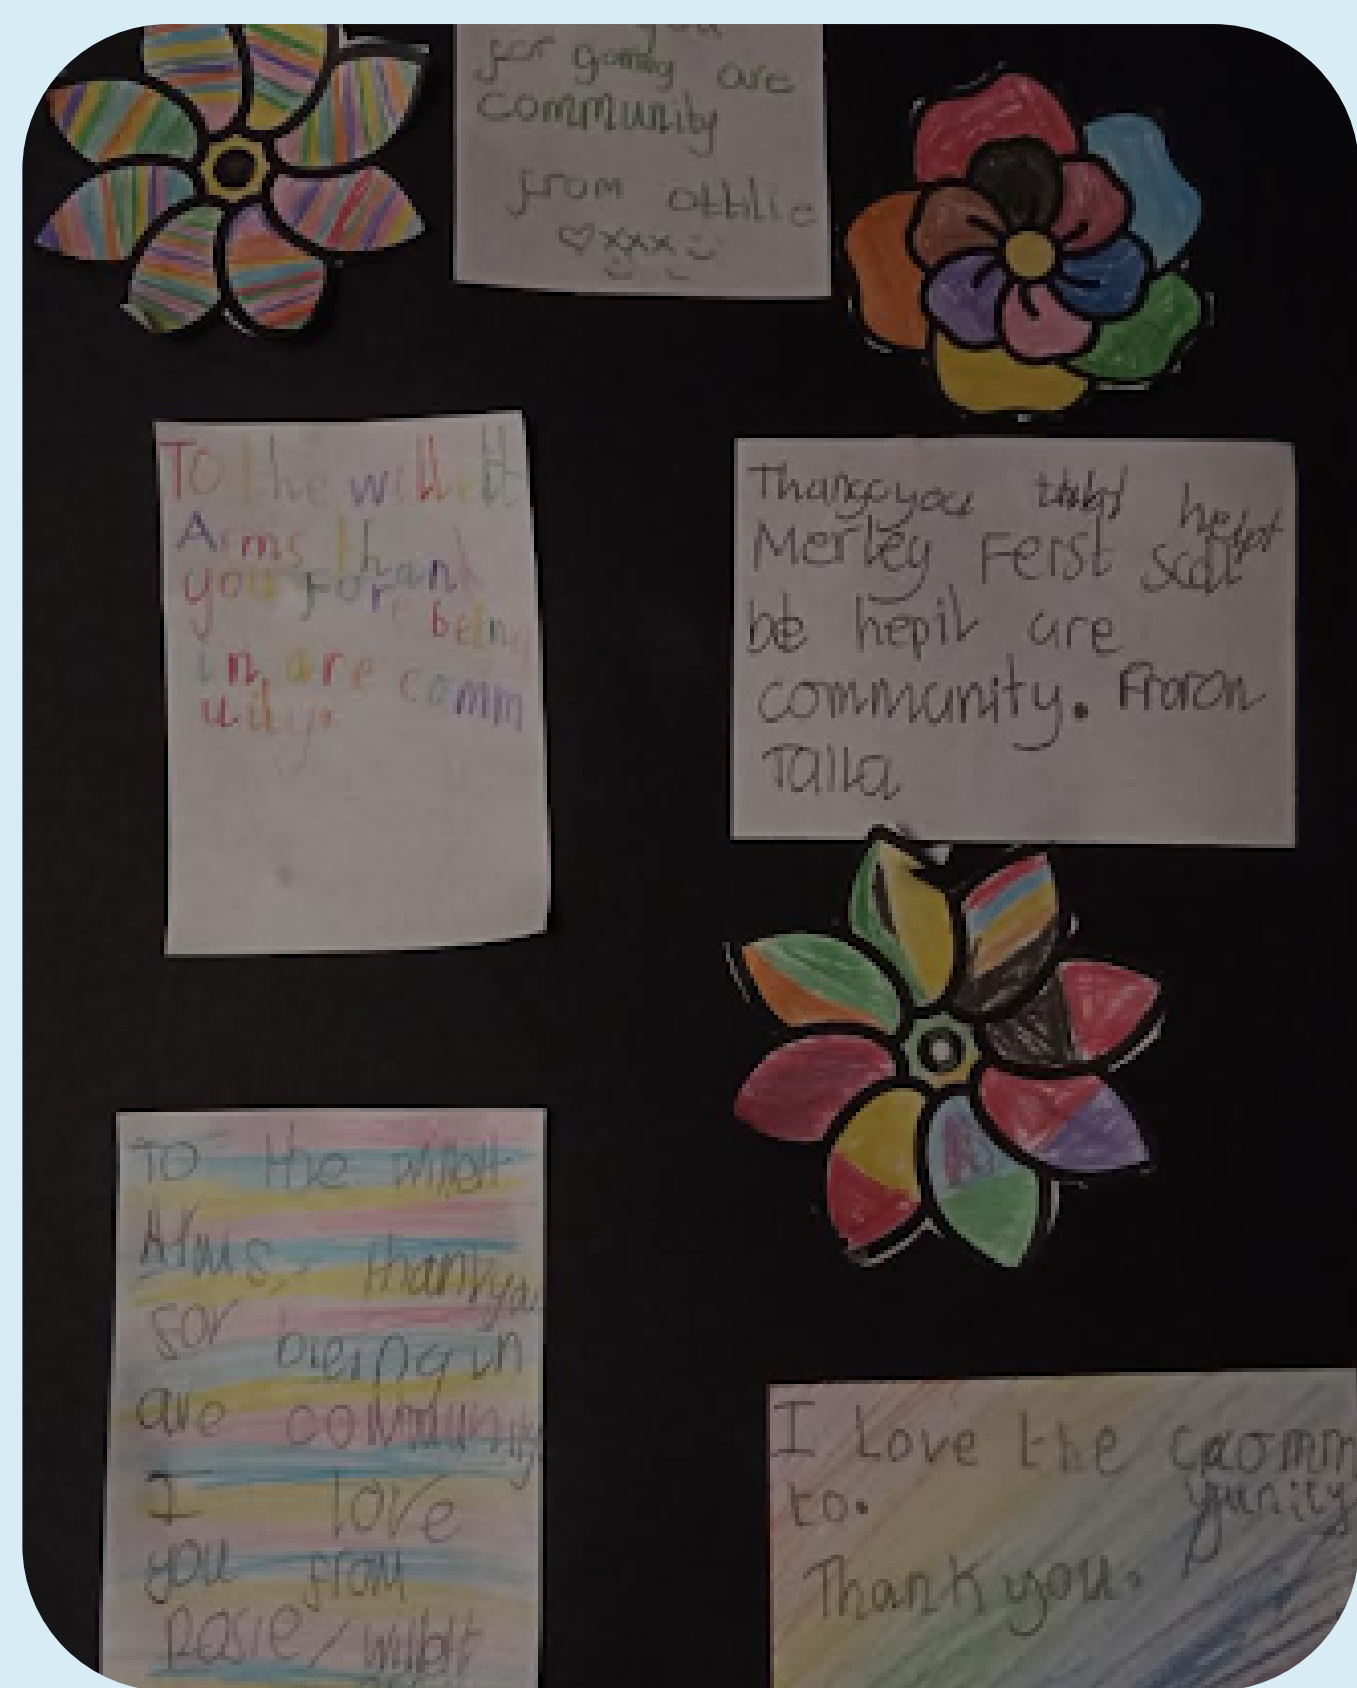 you
for gomig are
community
from ottilie
xxx
To the willett
Arms thank
you fore being
in are comm
uity.
Thangcyou hept
Merley Ferst Scoll
be hepil are
community. From
Taila
TO the willett
Arms thankyou
for bieing in
are community
I love
you from
Rosie/willett
I Love the ccomm
to. yunity
Thank you.